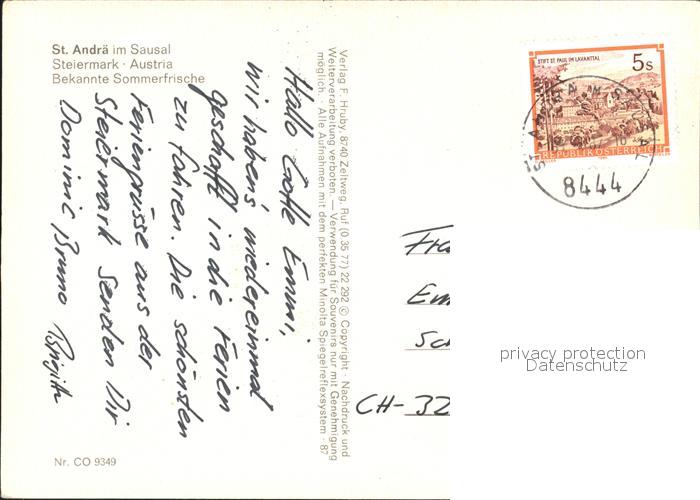 St. Andrä im Sausal
Steiermark · Austria
Bekannte Sommerfrische
Hallo Gotte Emmi,
wir habens wiedereinmal
geschafft in die Ferien
zu fahren. Die schönsten
Feriengrüsse aus der
Steiermark senden Dir
Dominic Bruno Brigitte
Nr. CO 9349
Verlag F. Hruby, 8740 Zeltweg, Ruf (0 35 77) 22 292 © Copyright · Nachdruck und
Weiterverarbeitung verboten. — Verwendung für Souvenirs nur mit Genehmigung
möglich. · Alle Aufnahmen mit dem perfekten Minolta Spiegelreflexsystem · 87
STIFT ST. PAUL IM LAVANTTAL
5s
REPUBLIK ÖSTERREICH
8444
Fra
Em
Sc
CH-32
privacy protection
Datenschutz